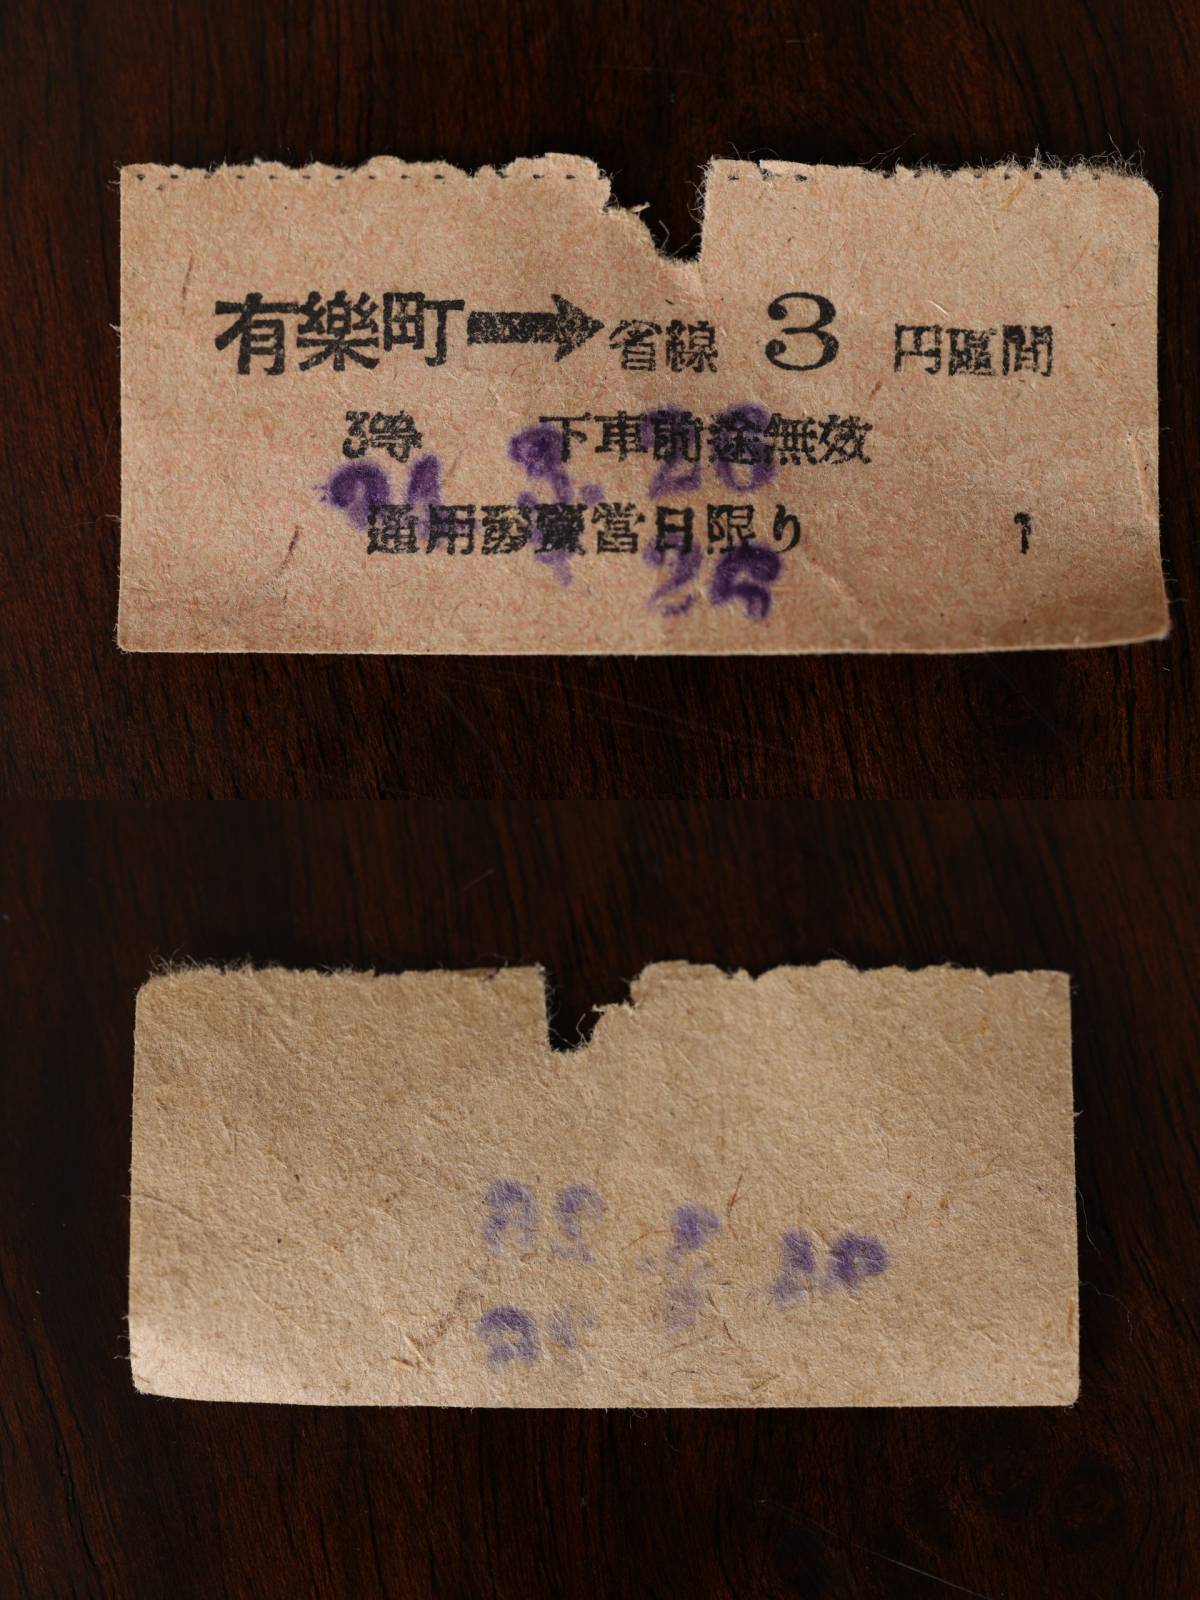 有樂町→省線 3 円區間
3等 下車前途無效
通用發賣當日限り 1